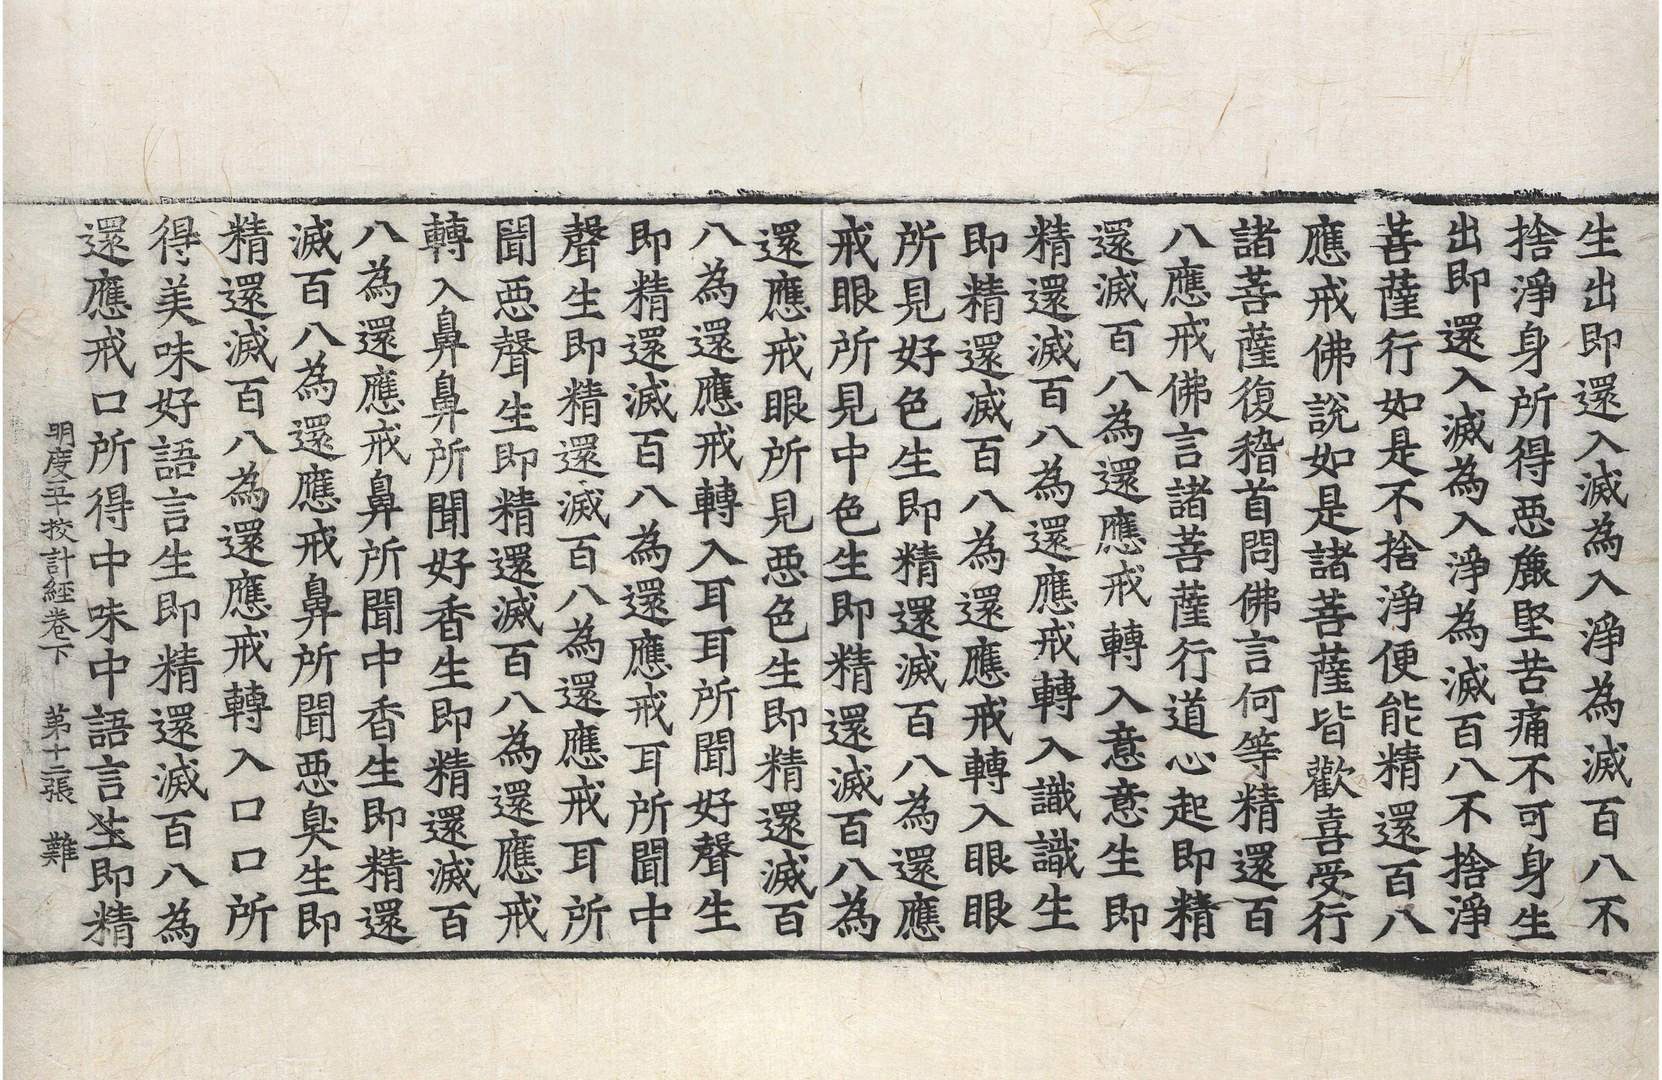 生出即還入滅為入淨為滅百八不
捨淨身所得悪麁堅苦痛不可身生
出即還入滅為入淨為滅百八不捨淨
菩薩行如是不捨淨便能精還百八
應戒佛說如是諸菩薩皆歡喜受行
諸菩薩復稽首問佛言何等精還百
八應戒佛言諸菩薩行道心起即精
還滅百八為還應戒轉入意意生即
精還滅百八為還應戒轉入識識生
即精還滅百八為還應戒轉入眼眼
所見好色生即精還滅百八為還應
戒眼所見中色生即精還滅百八為
還應戒眼所見悪色生即精還滅百
八為還應戒轉入耳耳所聞好聲生
即精還滅百八為還應戒耳所聞中
聲生即精還滅百八為還應戒耳所
聞悪聲生即精還滅百八為還應戒
轉入鼻鼻所聞好香生即精還滅百
八為還應戒鼻所聞中香生即精還
滅百八為還應戒鼻所聞悪臭生即
精還滅百八為還應戒轉入口口所
得美味好語言生即精還滅百八為
還應戒口所得中味中語言生即精
明度五十挍計經卷下 第十二張 難